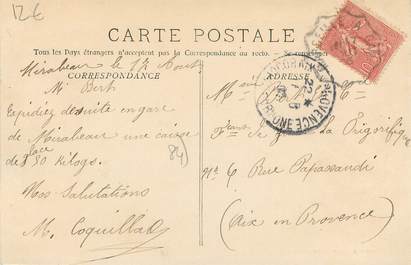 12€
CARTE POSTALE
Tous les Pays étrangers n'acceptent pas la Correspondance au recto.
CORRESPONDANCE
ADRESSE
Mirabeau le 17 Aout
Mr
Expédiez de suite en gare
de Mirabeau une caisse
glace
de 50 Kilogs.
Nos Salutations
M. Coquillat
84
Frigorifique
No 6 Rue Papassaudi
(Aix en Provence)
PROVENCE